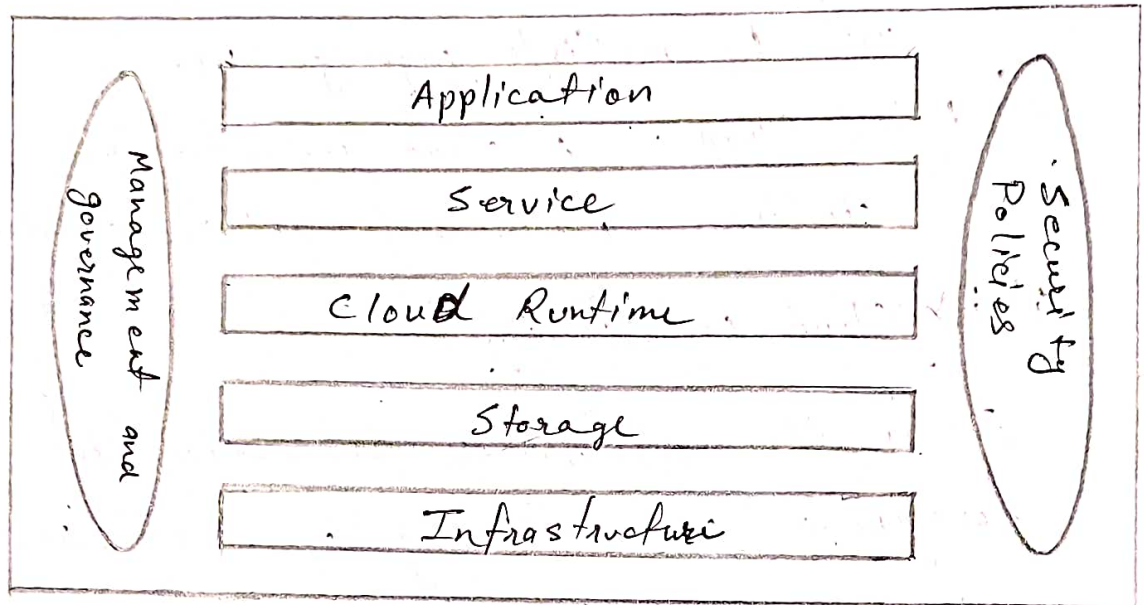 Management and
governance
Application
Service
Cloud Runtime
Storage
Infrastructure
Security
Policies